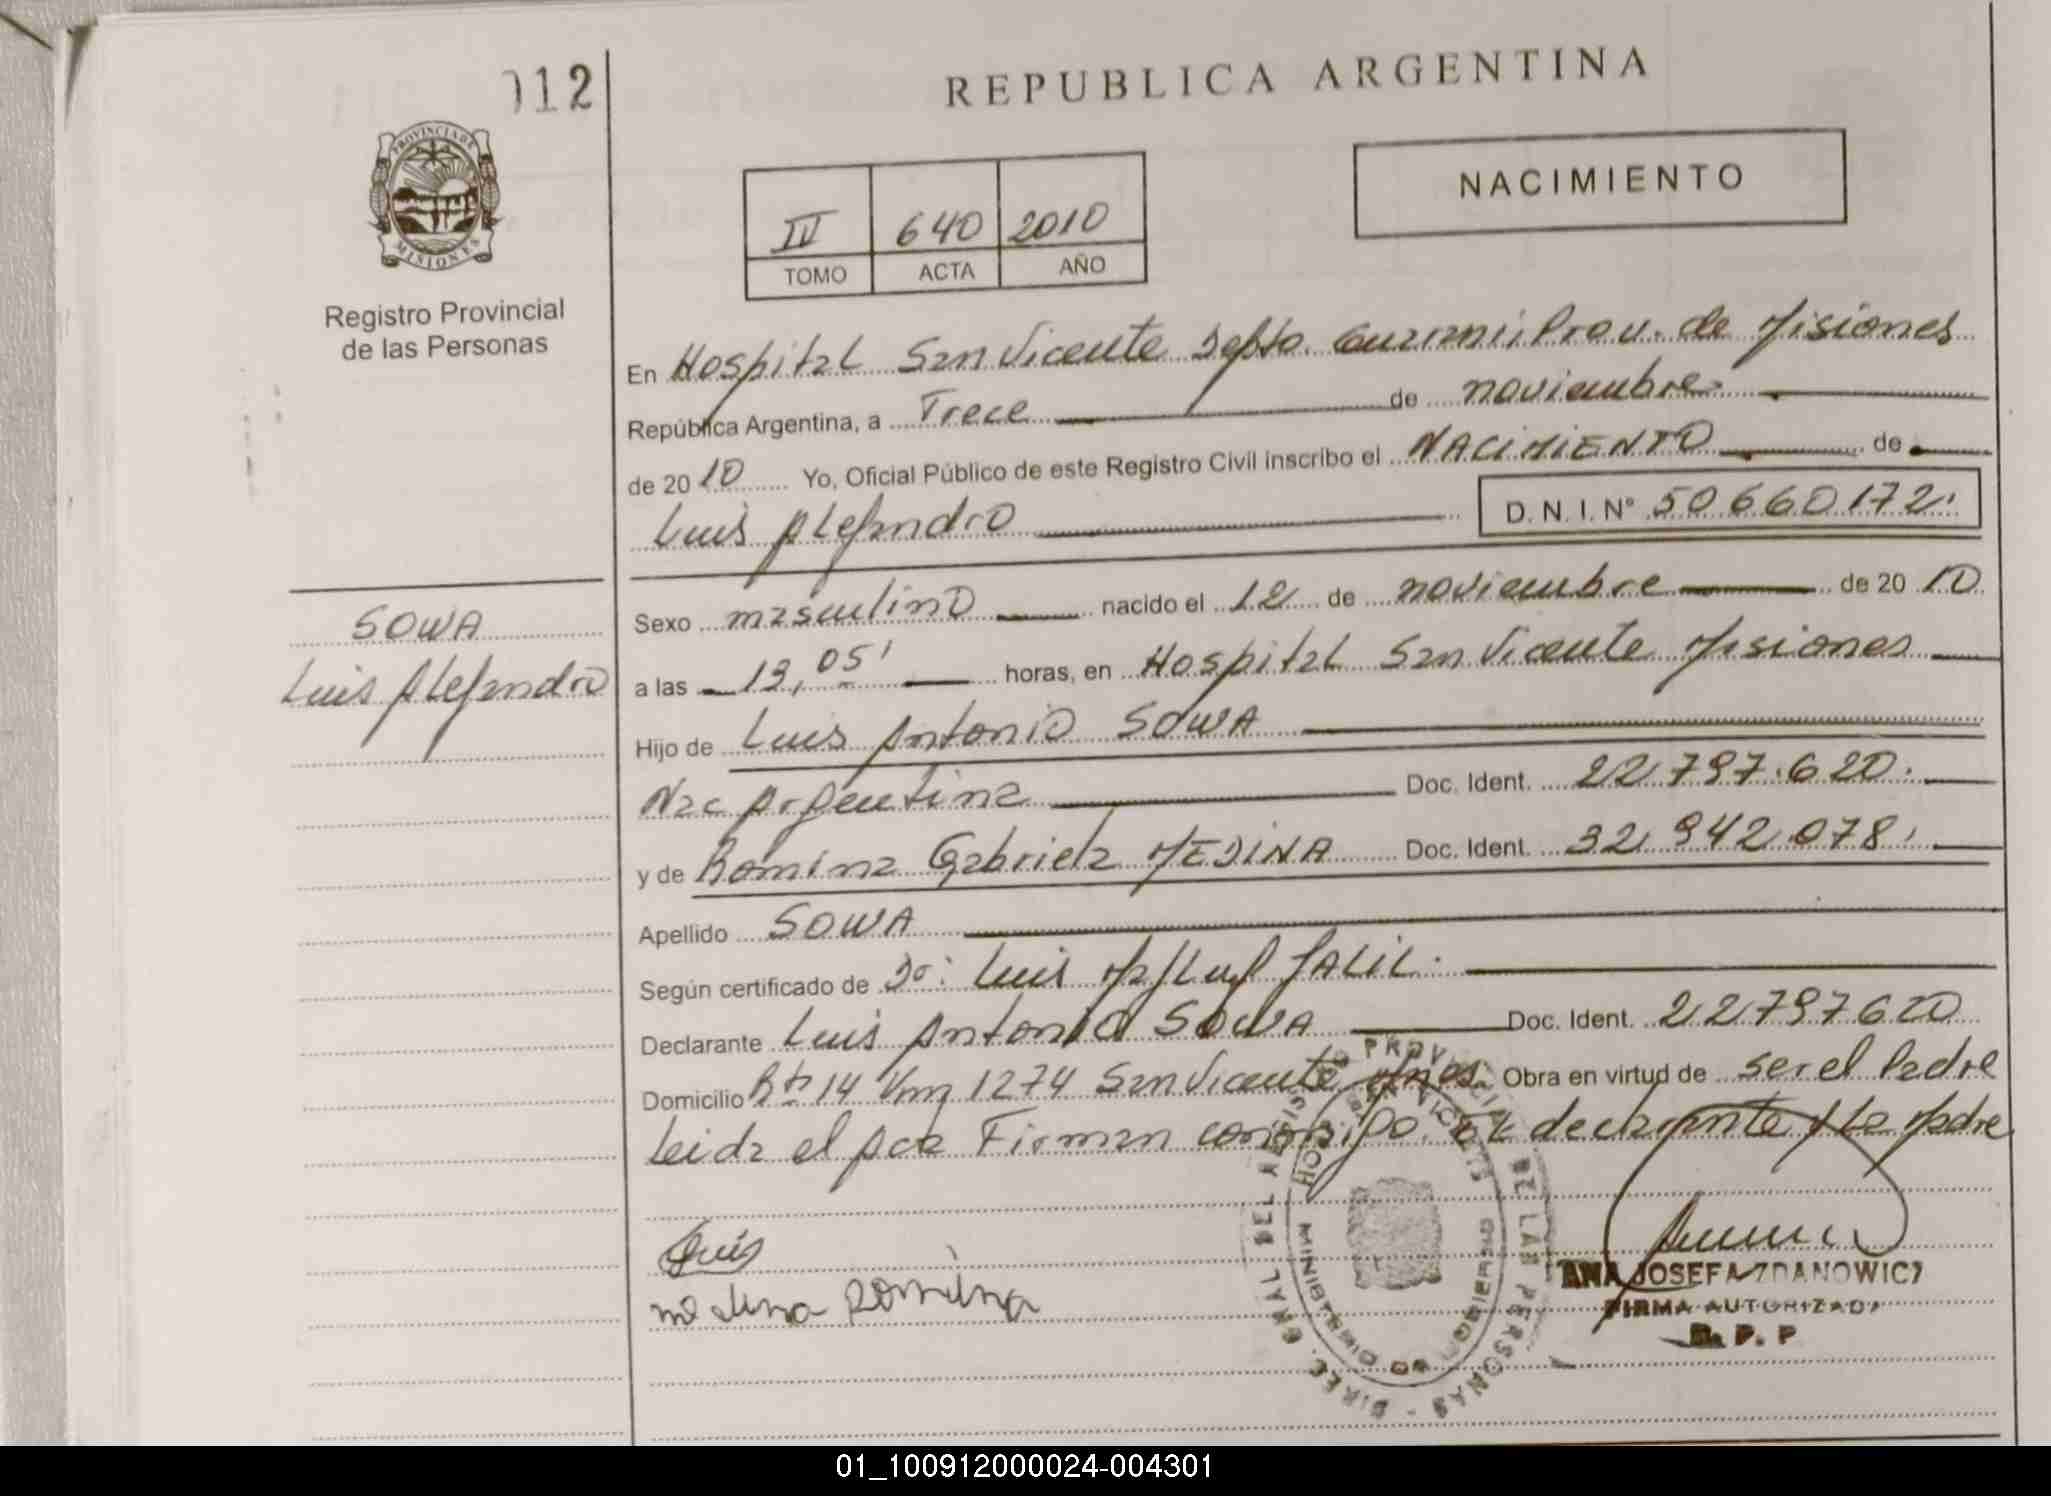 012
REPUBLICA ARGENTINA
PROVINCIA DE
MISIONES
Registro Provincial
de las Personas
IV 640 2010
TOMO ACTA AÑO
NACIMIENTO
En Hospital San Vicente Depto. Guaraní Prov. de Misiones
República Argentina, a Trece de noviembre
de 2010 Yo, Oficial Público de este Registro Civil inscribo el NACIMIENTO de
Luis Alejandro D.N.I. N° 50660172
SOWA
Luis Alejandro
Sexo masculino nacido el 12 de noviembre de 2010
a las 13,05' horas, en Hospital San Vicente Misiones
Hijo de Luis Antonio SOWA
Nac Argentina Doc. Ident. 22.797.620.
y de Romina Gabriela MEDINA Doc. Ident. 32.942.078
Apellido SOWA
Según certificado de Dr: Luis JALIL.
Declarante Luis Antonio SOWA Doc. Ident. 22797620
Domicilio Rta 14 Km 1274 San Vicente Mnes. Obra en virtud de ser el Padre
Leida el acta Firman conmigo, el declarante y La Madre
Luis
medina Romina
DIREC. GRAL. DEL REGISTRO PROVINCIAL DE LAS PERSONAS
MINISTERIO DE GOBIERNO
ANA JOSEFA ZDANOWICZ
FIRMA AUTORIZADA
R. P. P
01_100912000024-004301